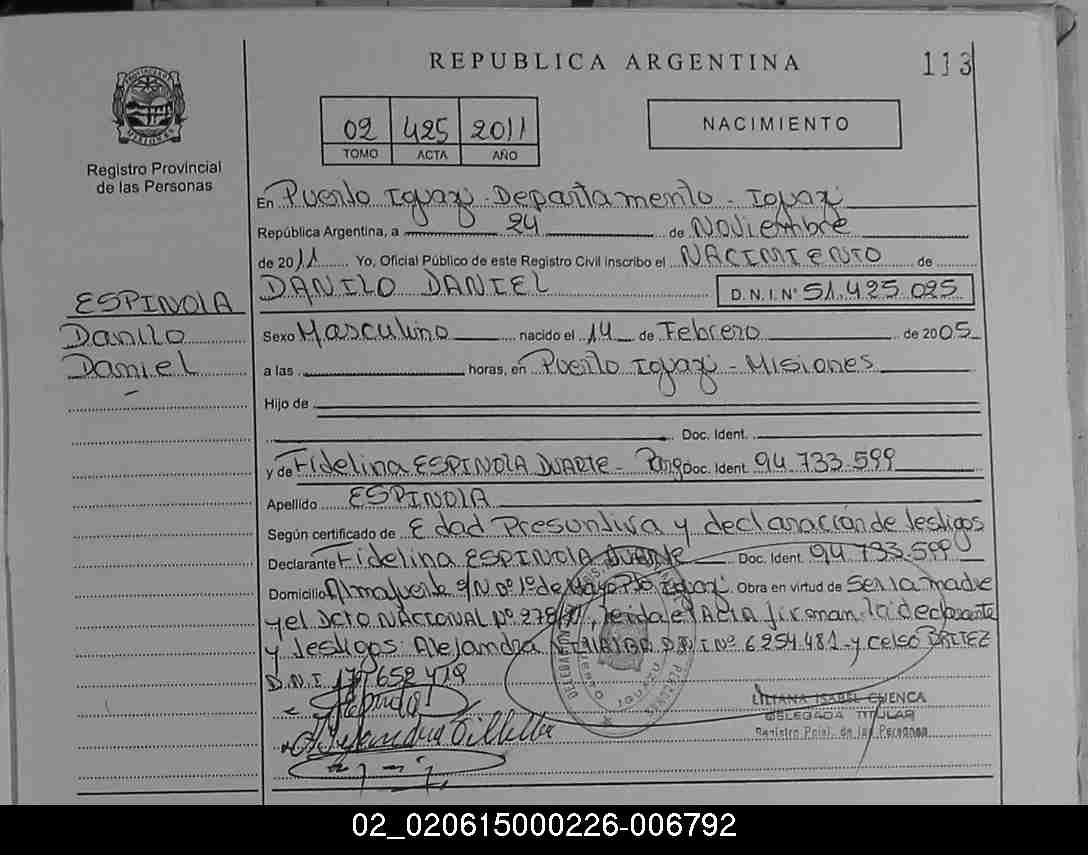 REPUBLICA ARGENTINA
113
Registro Provincial
de las Personas
02 425 2011
TOMO ACTA AÑO
NACIMIENTO
En Puerto Iguazú - Departamento - Iguazú
República Argentina, a 24 de Noviembre
de 2011 Yo, Oficial Público de este Registro Civil inscribo el NACIMIENTO de
DANILO DANIEL D.N.I. Nº 51.425.025
ESPINOLA
Danilo
Daniel
Sexo Masculino nacido el 14 de Febrero de 2005
a las horas, en Puerto Iguazú - Misiones
Hijo de
Doc. Ident.
y de Fidelina ESPINOLA DUARTE - Doc. Ident. 94.733.599
Apellido ESPINOLA
Según certificado de Edad Presuntiva y declaración de testigos
Declarante Fidelina ESPINOLA DUARTE Doc. Ident. 94.733.599
Domicilio Almafuerte S/N Bº 1º de Mayo Pto Iguazú. Obra en virtud de Ser la madre
y el DCTO NACIONAL Nº leída el ACTA firman la declarante
y testigos: Alejandra D.N.I Nº 6.254.481 - y Celso BRITEZ
D.N.I 17.652.419
LILIANA ISABEL CUENCA
DELEGADA TITULAR
Registro Pcial. de las Personas
02_020615000226-006792